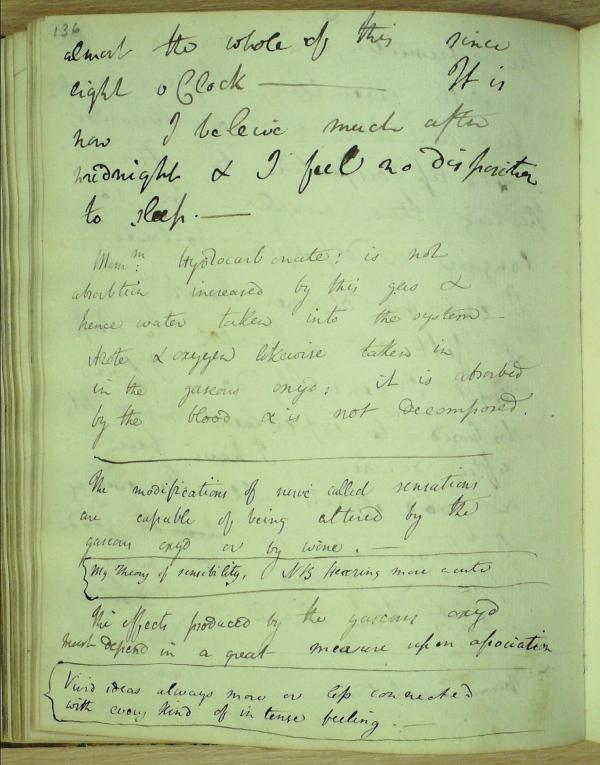 136
almost the whole of this since
eight o Clock — It is
now I beleive much after
midnight & I feel no disposition
to sleep. —
Mem.m Hydrocarbonate: is not
absorbtion increased by this gas &
hence water taken into the system —
Azote & oxygen likewise taken in
in the gaseous oxyd: it is absorbed
by the blood & is not decomposed.
The modifications of nerve called sensations
are capable of being altered by the
gaseous oxyd or by wine. —
My Theory of sensibility. NB Hearing more acute
The effects produced by the gaseous oxyd
must depend in a great measure upon association
Vivid ideas always more or less connected
with every kind of intense feeling. —